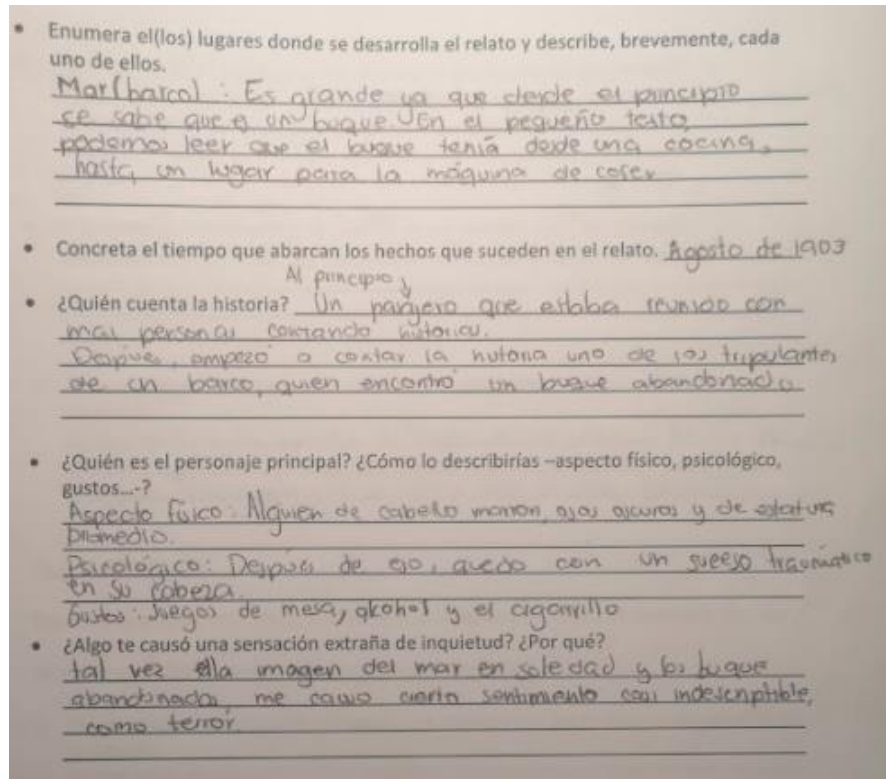 • Enumera el(los) lugares donde se desarrolla el relato y describe, brevemente, cada
uno de ellos.
Mar(barco): Es grande ya que desde el principio
se sabe que e un buque. En el pequeño texto,
podemos leer que el buque tenía desde una cocina,
hasta, un lugar para la máquina de coser
• Concreta el tiempo que abarcan los hechos que suceden en el relato. Agosto de 1903
Al principio,
• ¿Quién cuenta la historia? Un pasajero que estaba reunido con
mas personas contando historias.
Despues, empezó a contar la historia uno de los tripulantes
de un barco, quien encontró un buque abandonado
• ¿Quién es el personaje principal? ¿Cómo lo describirías –aspecto físico, psicológico,
gustos...-?
Aspecto físico: Alguien de cabello marron, ojos oscuros y de estatura
promedio.
Psicológico: Después de eso, quedo con un suceso traumático
en su cabeza.
Gustos: Juegos de mesa, alcohol y el cigarrillo
• ¿Algo te causó una sensación extraña de inquietud? ¿Por qué?
tal vez la imagen del mar en soledad y los buque
abandonados, me causo cierto sentimiento casi indescriptible,
como terror